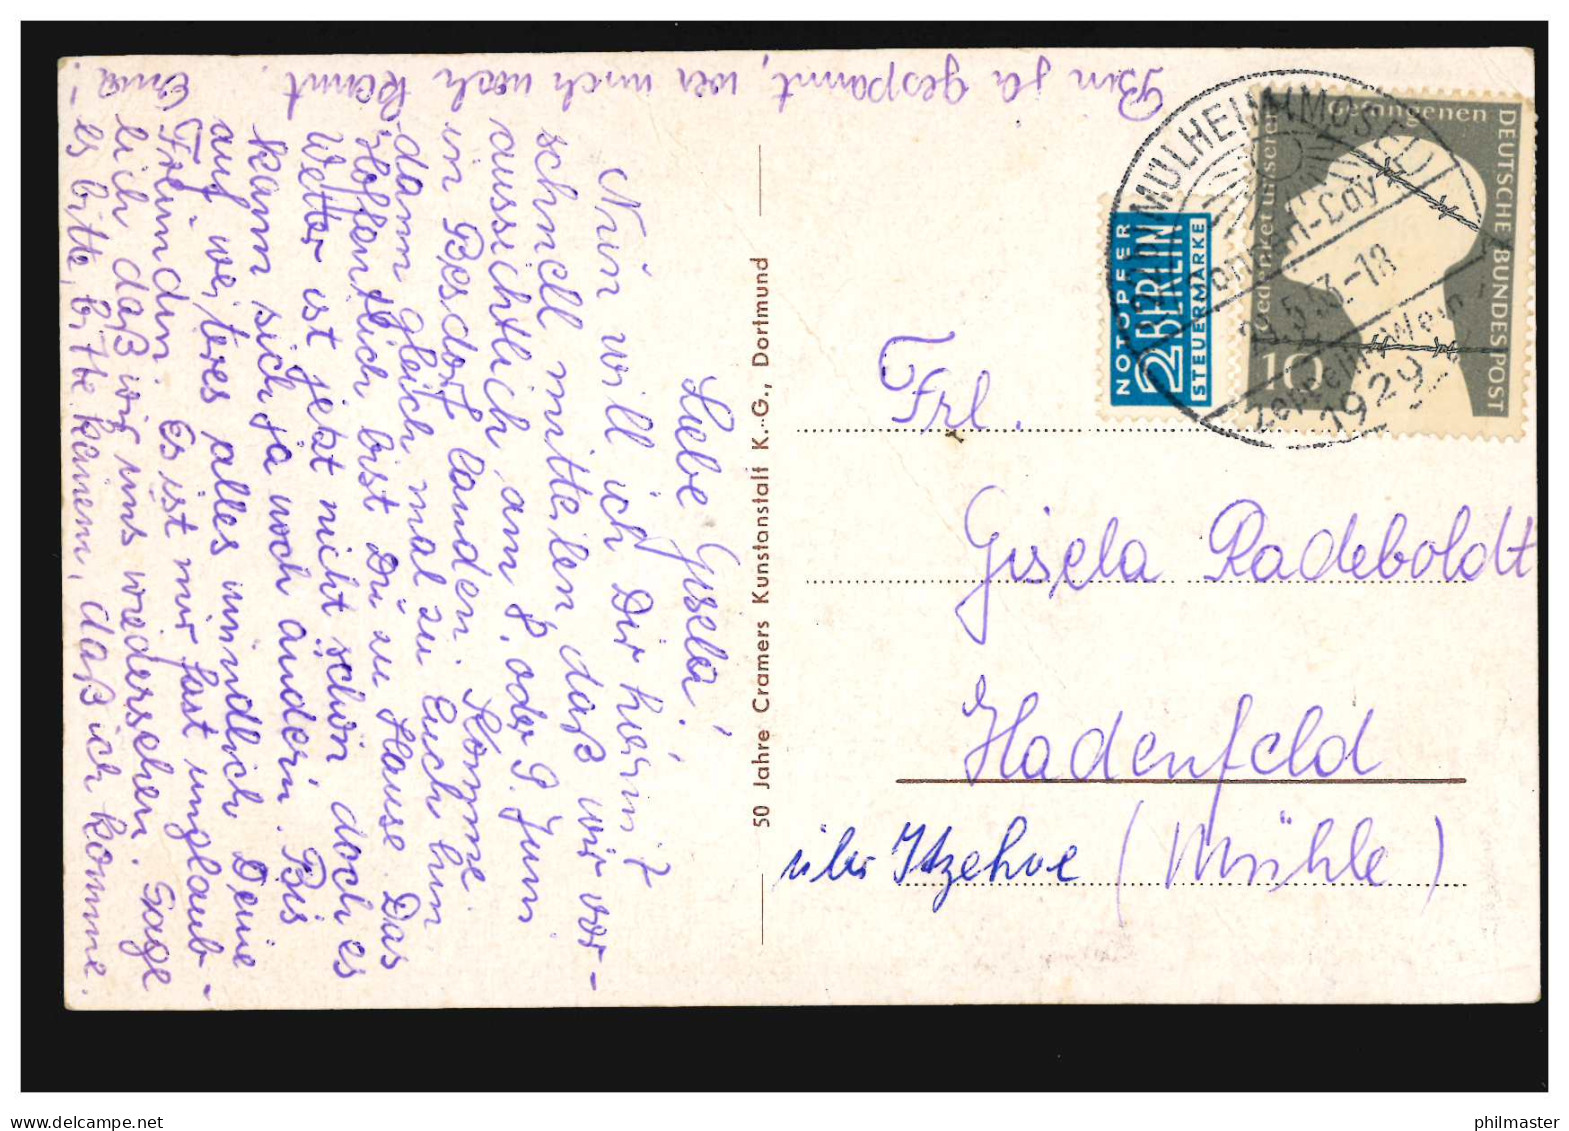 Bin ja gespannt, wer mich noch kennt.
Liebe Gisela!
Nun will ich Dir hiermit
schnell mitteilen daß wir vor-
aussichtlich am 8. oder 9. Juni
in Besdorf landen. Komme
dann gleich mal zu Euch hin.
Hoffentlich bist Du zu Hause. Das
Wetter ist jetzt nicht schön doch es
kann sich ja noch ändern. Bis
auf weiteres alles mündlich Deine
Freundin. Es ist mir fast unglaub-
lich daß wir uns wiedersehen. Sage
es bitte, bitte keinem, daß ich komme.
50 Jahre Cramers Kunstanstalt K.-G., Dortmund
NOTOPFER
2 BERLIN
STEUERMARKE
Gedenket unserer
Gefangenen
DEUTSCHE BUNDESPOST
10
MÜLHEIM (MOSEL)
Sonnen-Lay
5.53.-18
Zeppelin-Wein
1929
Frl.
Gisela Radeboldt
Hadenfeld
über Itzehoe (Mühle)
philmaster